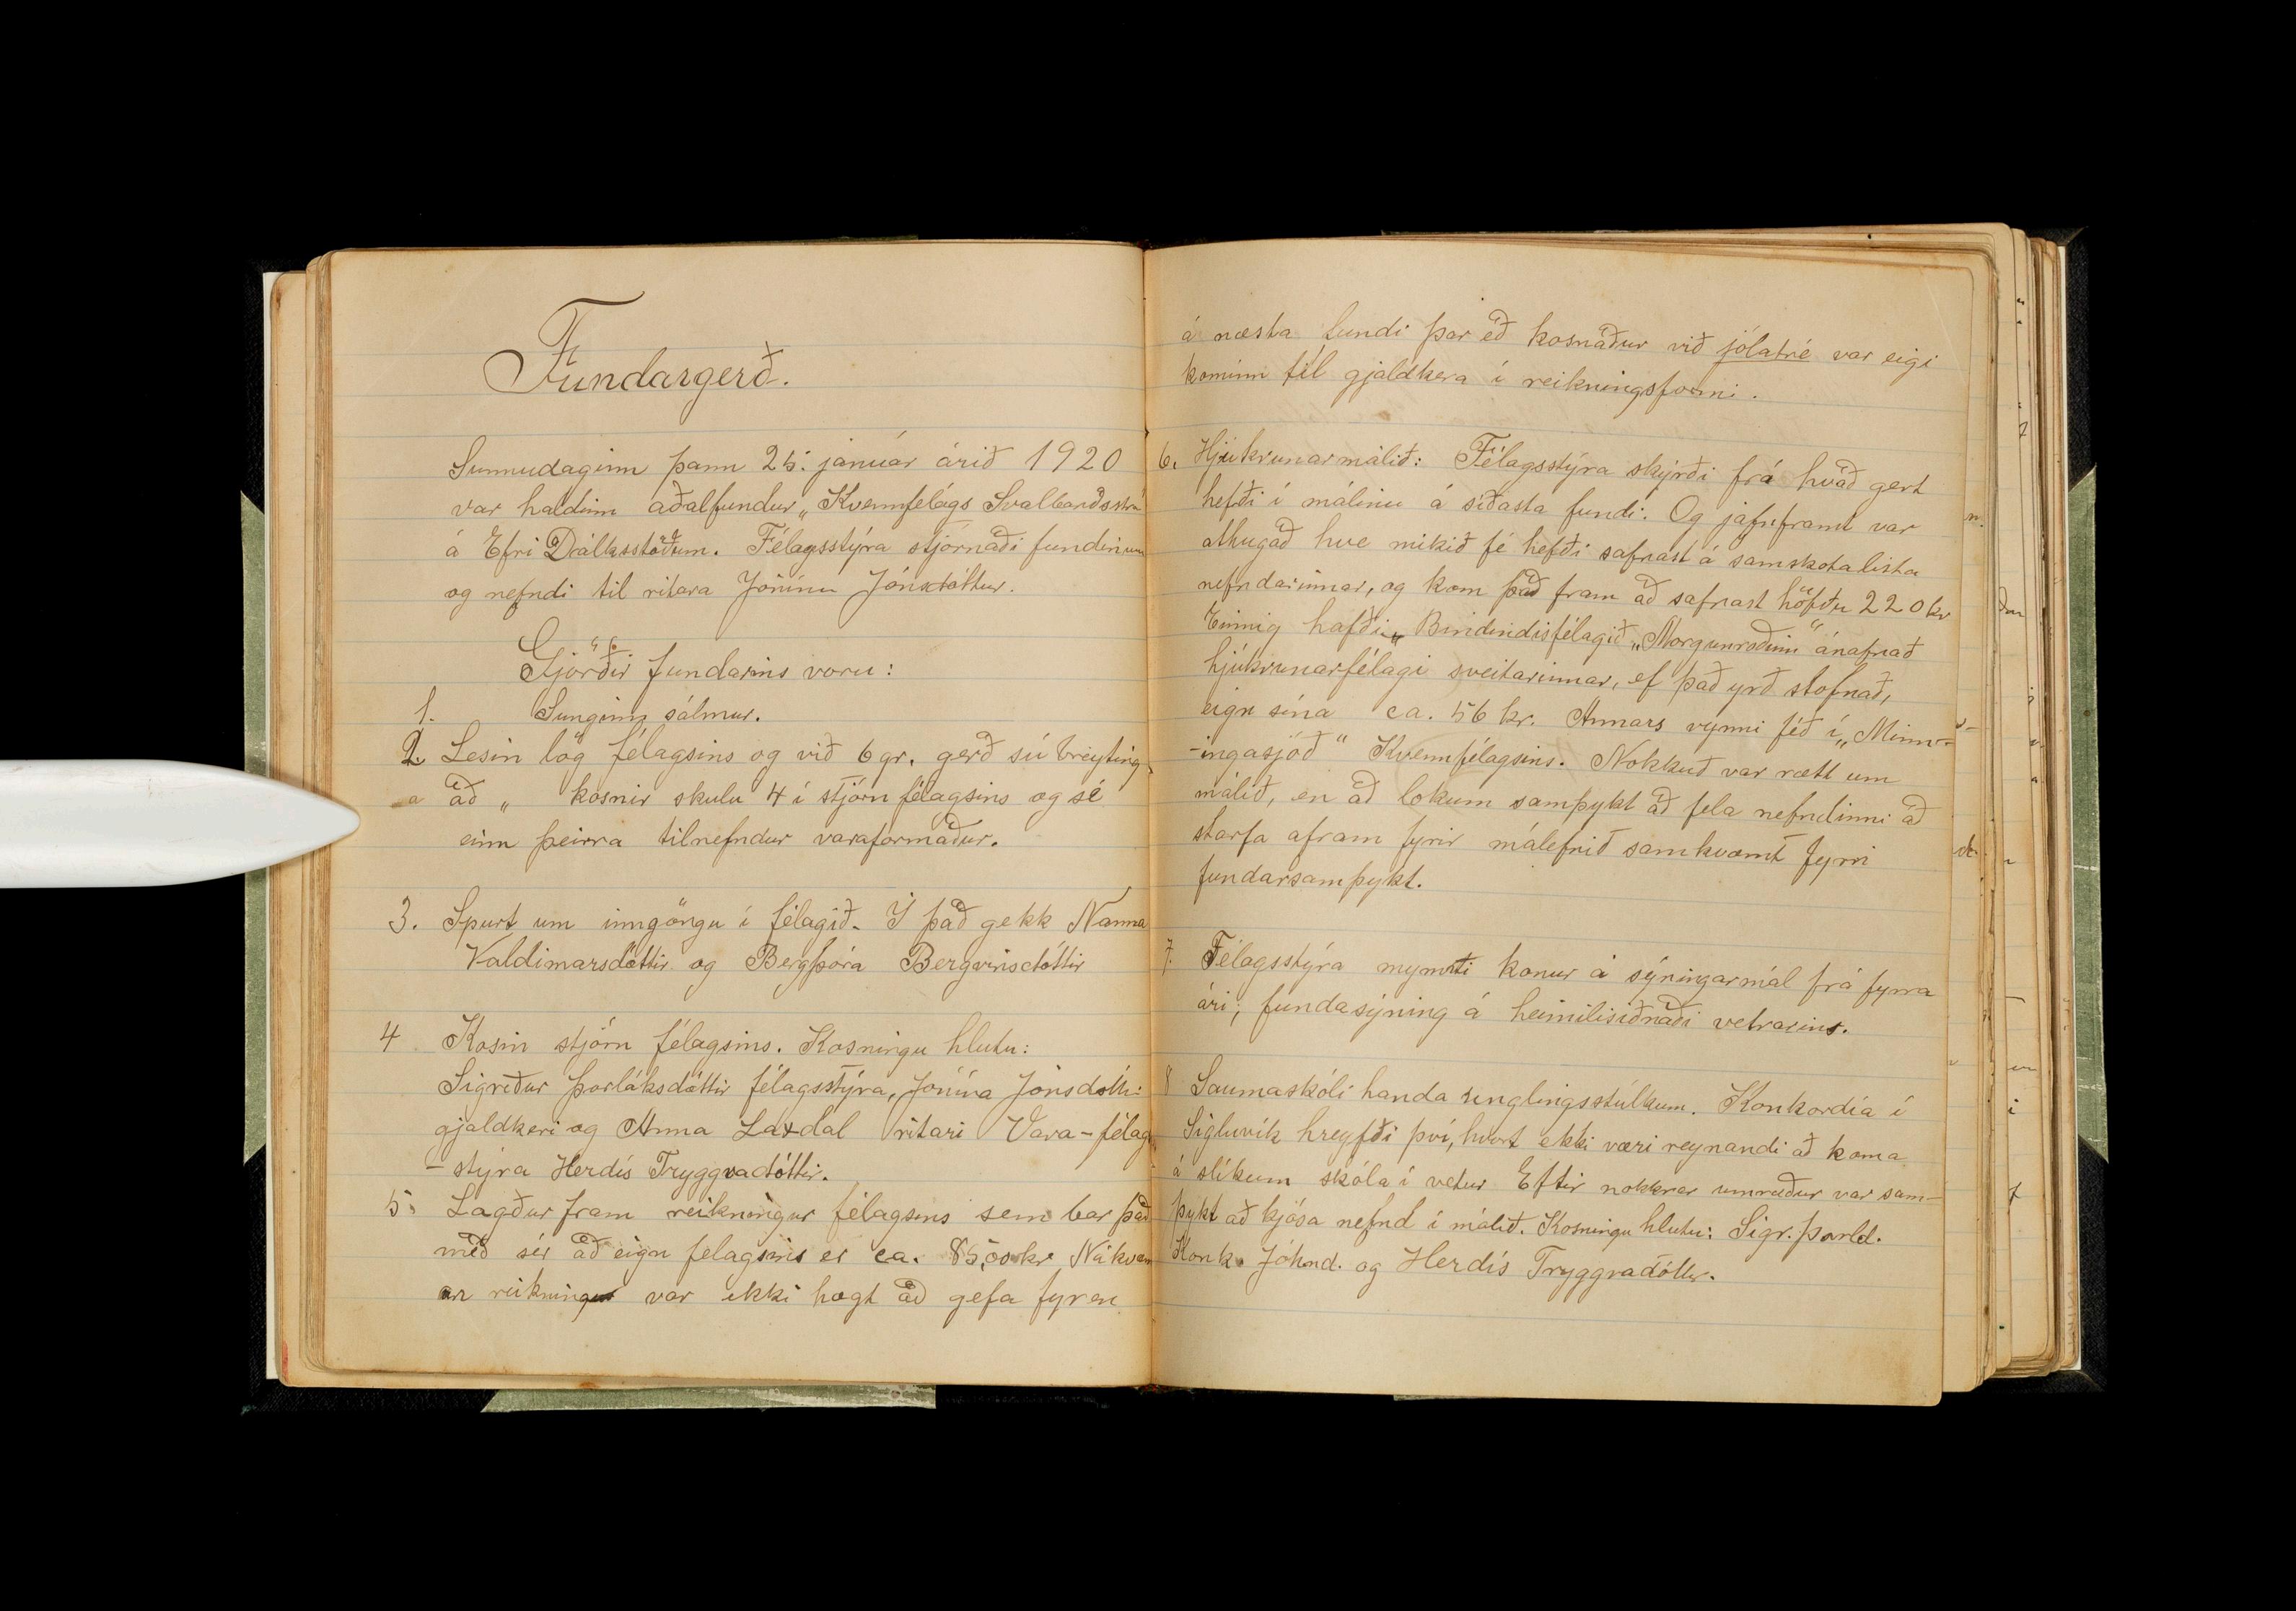 Fundargerð.
Sunnudaginn þann 25. janúar árið 1920
var haldinn aðalfundur „Kvennfélags Svalbarðsstrá
á Efri Dálksstöðum. Félagsstýra stjórnaði fundinum
og nefndi til ritara Jónínu Jónsdóttur.
Gjörðir fundarins voru:
1. Sunginn sálmur.
2. Lesin lög félagsins og við 6 gr. gerð sú breyting
a að „ kosnir skulu 4 í stjórn félagsins og sé
einn þeirra tilnefndur varaformaður.
3. Spurt um inngöngu í félagið. Í það gekk Nanna
Valdimarsdóttir og Bergþóra Bergvinsdóttir
4 Kosin stjórn félagsins. Kosningu hlutu:
Sigríður Þorláksdóttir félagsstýra, Jónína Jónsdótti:
gjaldkeri og Anna Laxdal ritari Vara-félag
-stýra Herdís Tryggvadóttir.
5. Lagður fram reikningur félagsins sem bar það
með sér að eign felagsins er ca. 85,00 kr Nákvæm
ur reikningur var ekki hægt að gefa fyren
á næsta fundi þar eð kosnaður við jólatré var eigi
kominn til gjaldkera í reikningsformi.
6. Hjúkrunarmálið: Félagsstýra skýrði frá hvað gert
hefði í málinu á síðasta fundi. Og jafnframt var
athugað hve mikið fé hefði safnast á samskotalista
nefndarinnar, og kom það fram að safnast höfðu 220 kr
Einnig hafði „Bindindisfélagið „Morgunroðinn" ánafnað
hjúkrunarfélagi sveitarinnar, ef það yrð stofnað,
eign sína ca. 56 kr. Annars rynni féð í „Minn-
-ingasjóð" Kvennfélagsins. Nokkuð var rætt um
málið, en að lokum samþykt að fela nefndinni að
starfa afram fyrir málefnið samkvæmt fyrri
fundarsamþykt.
7. Félagsstýra mynnti konur á sýningarmál frá fyrra
ári; fundasýning á heimilisiðnaði vetrarins.
8 Saumaskóli handa unglingsstúlkum. Konkordía í
Sigluvík hreyfði því, hvort ekki væri reynandi að koma
á slíkum skóla í vetur Eftir nokkrar umræður var sam-
þykt að kjósa nefnd í málið. Kosningu hlutu: Sigr. Þorld.
Konk. Jóhnd. og Herdís Tryggvadóttir.